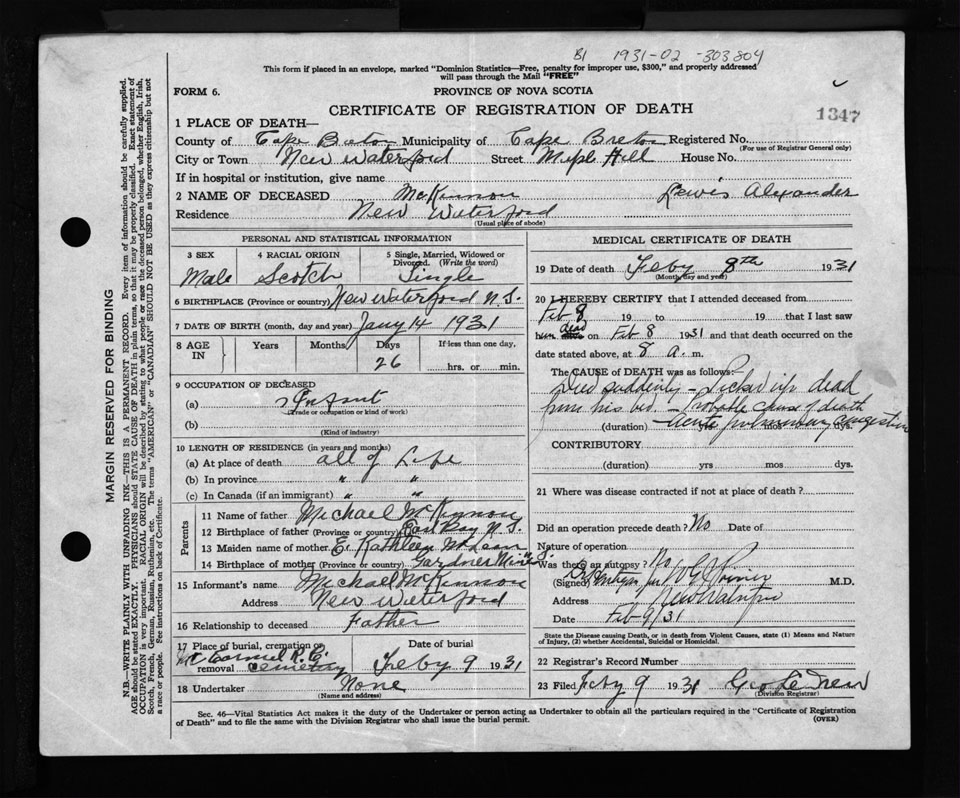 B1 1931-02-303804
This form if placed in an envelope, marked "Dominion Statistics—Free, penalty for improper use, $300," and properly addressed
will pass through the Mail "FREE"
FORM 6.
PROVINCE OF NOVA SCOTIA
CERTIFICATE OF REGISTRATION OF DEATH
1347
1 PLACE OF DEATH—
County of Cape Breton Municipality of Cape Breton Registered No.
(For use of Registrar General only)
City or Town New Waterford Street Maple Hill House No.
If in hospital or institution, give name
2 NAME OF DECEASED McKinnon Lewis Alexander
Residence New Waterford
(Usual place of abode)
PERSONAL AND STATISTICAL INFORMATION
3 SEX
Male
4 RACIAL ORIGIN
Scotch
5 Single, Married, Widowed or
Divorced. (Write the word)
Single
6 BIRTHPLACE (Province or country) New Waterford N.S.
7 DATE OF BIRTH (month, day and year) Jany 14 1931
8 AGE
IN
Years
Months
Days
26
If less than one day,
hrs. or min.
9 OCCUPATION OF DECEASED
(a) Infant
(Trade or occupation or kind of work)
(b)
(Kind of industry)
10 LENGTH OF RESIDENCE (in years and months)
(a) At place of death all of Life
(b) In province " "
(c) In Canada (if an immigrant) " "
Parents
11 Name of father Michael McKinnon
12 Birthplace of father (Province or country) East Bay N.S.
13 Maiden name of mother E. Kathleen McLean
14 Birthplace of mother (Province or country) Gardner Mines N.S.
15 Informant's name Michael McKinnon
Address New Waterford
16 Relationship to deceased Father
17 Place of burial, cremation or
removal Mt Carmel R.C. cemetery
Date of burial
Feby 9 1931
18 Undertaker None
(Name and address)
MEDICAL CERTIFICATE OF DEATH
19 Date of death Feby 8th 1931
(Month, day and year)
20 I HEREBY CERTIFY that I attended deceased from
Feb 8 19 to 19 that I last saw
him dead on Feb 8 1931 and that death occurred on the
date stated above, at 8 a. m.
The CAUSE of DEATH was as follows:
Died suddenly - Picked up dead
from his bed. - Probable cause of death
(duration) yrs mos dys.
Acute pulmonary congestion
CONTRIBUTORY.
(duration) yrs mos dys.
21 Where was disease contracted if not at place of death?
Did an operation precede death? No Date of
Nature of operation
Was there an autopsy? No
(Signed) for M.D.
Address New Waterford
Date Feb 9/31
State the Disease causing Death, or in death from Violent Causes, state (1) Means and Nature
of Injury, (2) whether Accidental, Suicidal or Homicidal.
22 Registrar's Record Number
23 Filed Feby 9 1931 Geo
(Division Registrar)
Sec. 46—Vital Statistics Act makes it the duty of the Undertaker or person acting as Undertaker to obtain all the particulars required in the "Certificate of Registration
of Death" and to file the same with the Division Registrar who shall issue the burial permit.
(OVER)
MARGIN RESERVED FOR BINDING
N.B.—WRITE PLAINLY WITH UNFADING INK—THIS IS A PERMANENT RECORD. Every item of information should be carefully supplied.
AGE should be stated EXACTLY. PHYSICIANS should STATE CAUSE OF DEATH in plain terms, so that it may be properly classified. Exact statement of
OCCUPATION is very important. RACIAL ORIGIN will be described by stating to what people or race the deceased person belonged, whether English, Irish,
Scotch, French, German, Russian, Ruthenian, etc. The terms "AMERICAN" or "CANADIAN" SHOULD NOT BE USED as they express citizenship but not
a race or people. See instructions on back of Certificate.